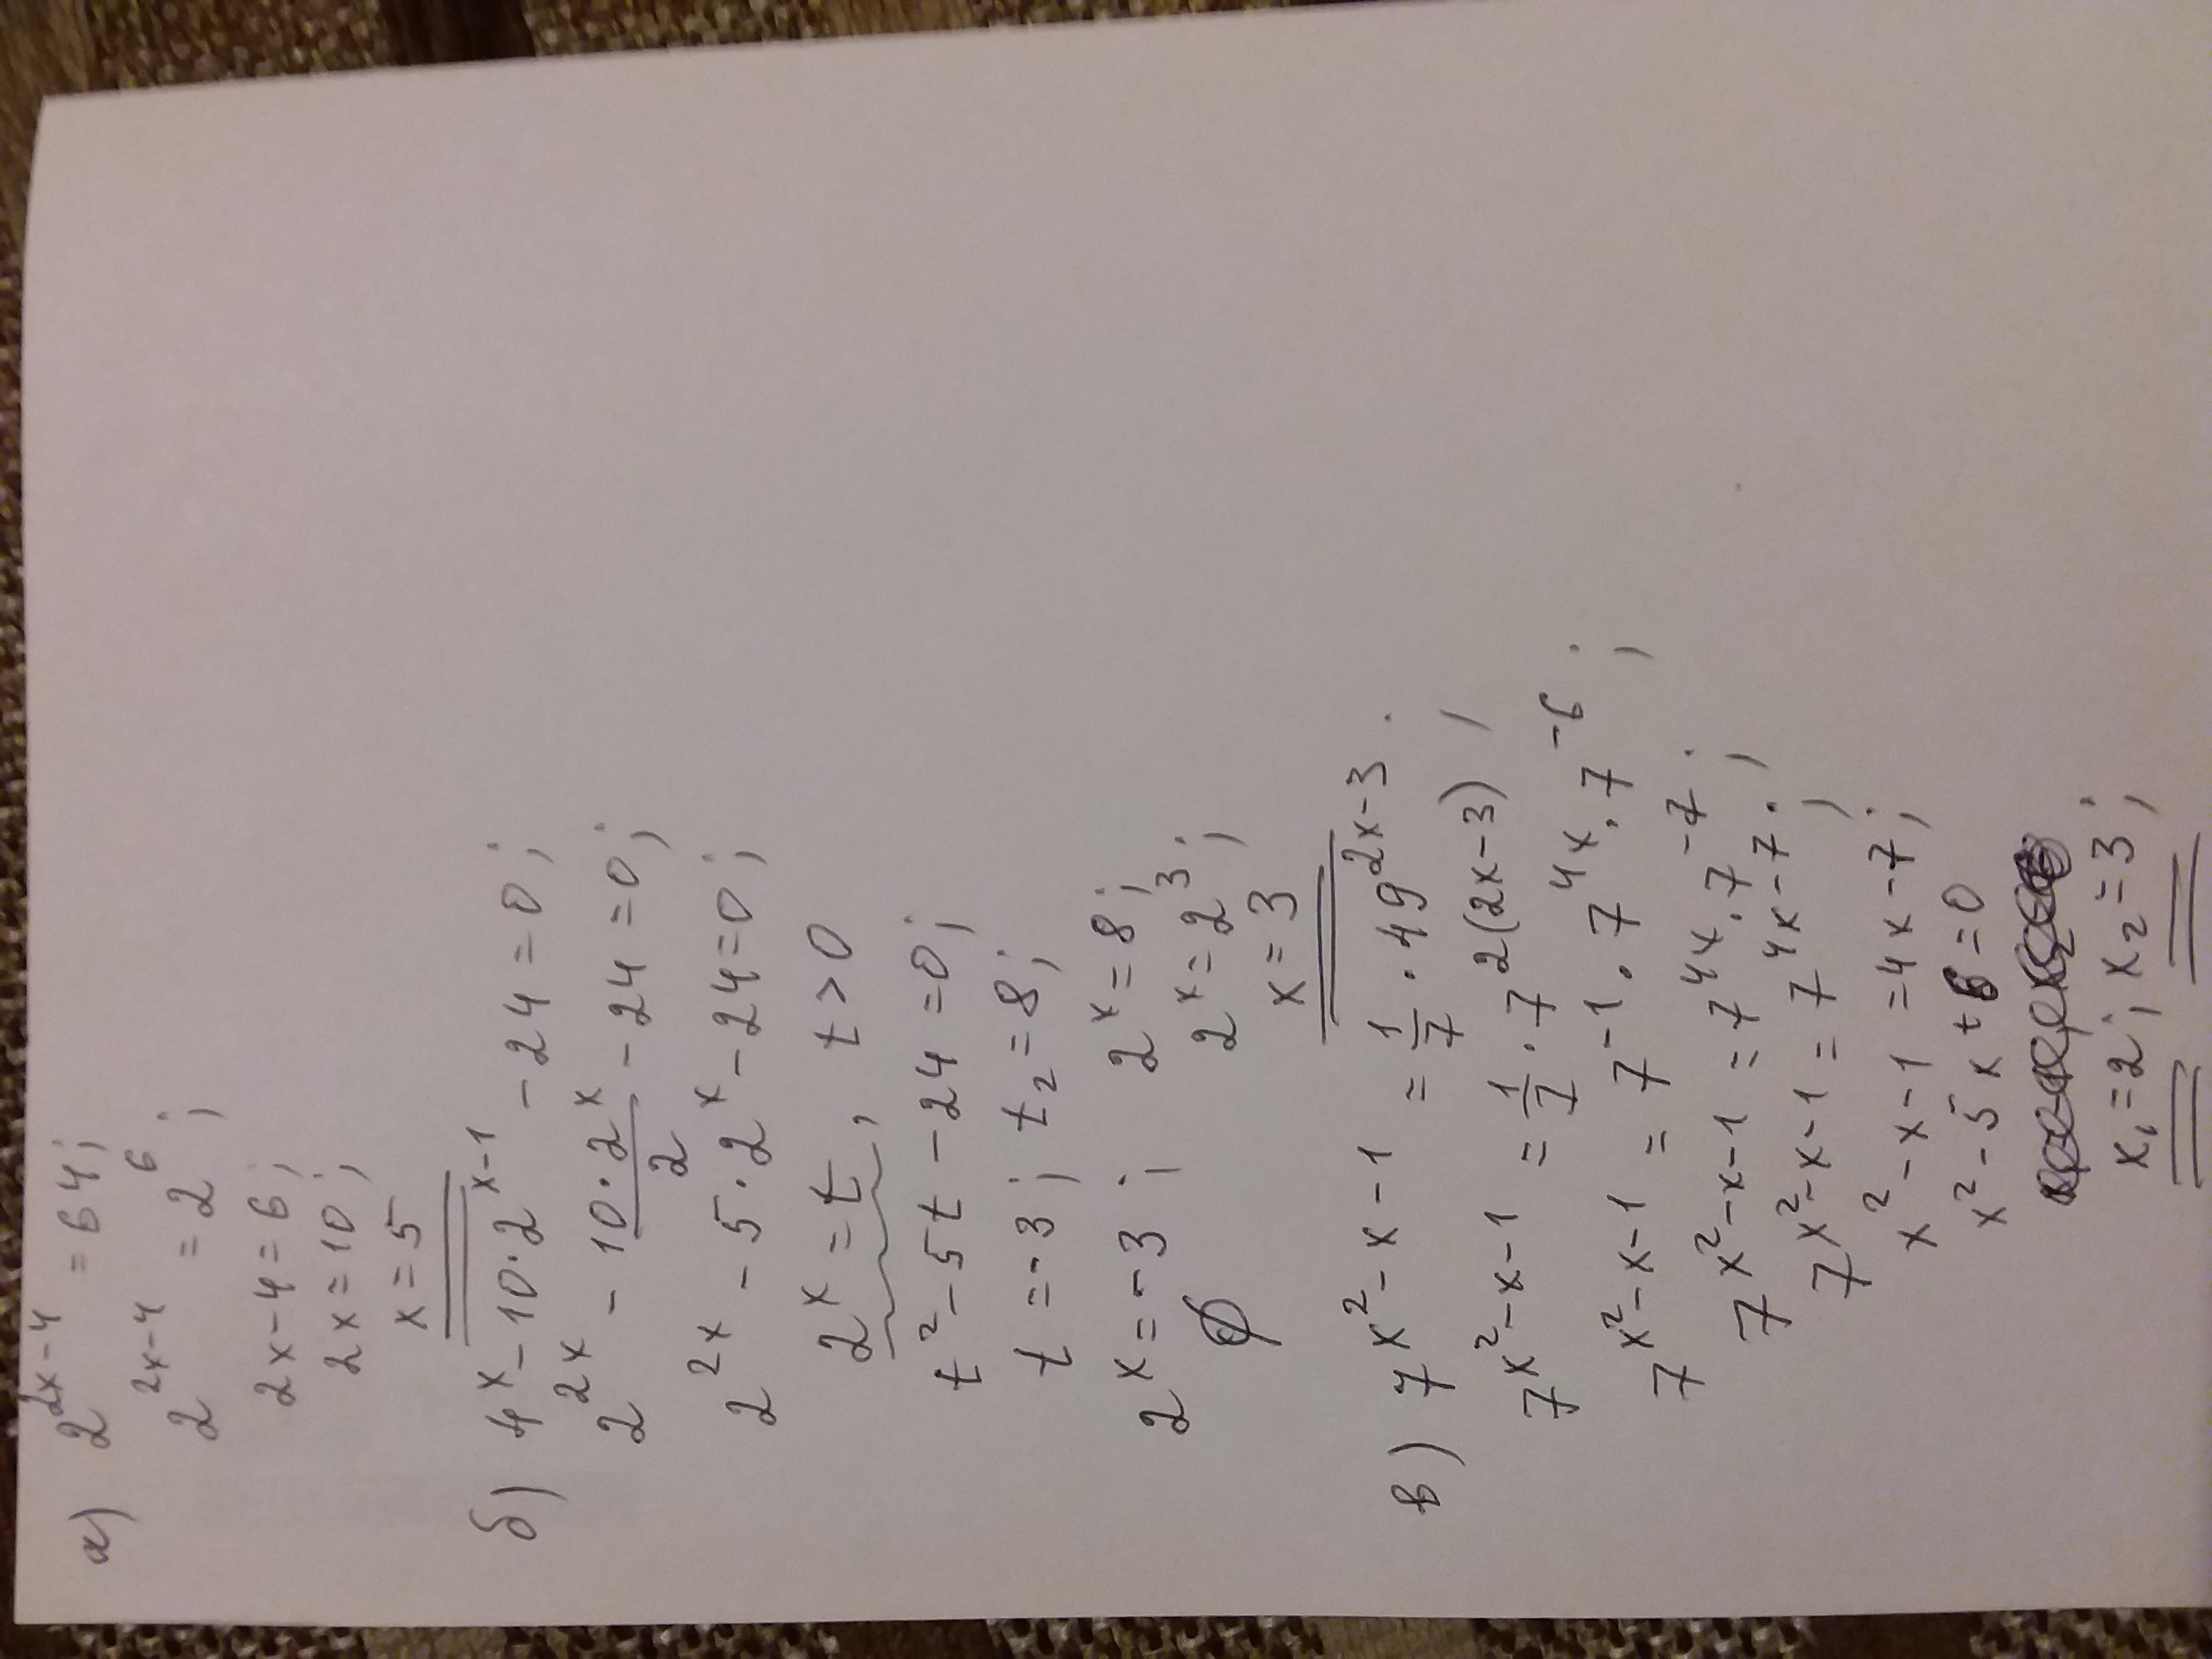 а) 2^(2x-4) = 64;
2^(2x-4) = 2^6;
2x-4=6;
2x=10;
x=5
б) 4^x-10·2^(x-1)-24=0;
2^(2x) - (10·2^x)/2 -24=0;
2^(2x) -5·2^x-24=0;
2^x=t, t>0
t²-5t-24=0;
t=-3; t₂=8;
2^x=-3; 2^x=8;
∅ 2^x=2^3;
x=3
в) 7^(x²-x-1) = 1/7·49^(2x-3);
7^(x²-x-1) = 1/7·7^(2(2x-3));
7^(x²-x-1) = 7^(-1)·7^(4x)·7^(-6);
7^(x²-x-1) = 7^(4x)·7^(-7);
7^(x²-x-1) = 7^(4x-7);
x²-x-1=4x-7;
x²-5x+6=0
x₁=2; x₂=3;